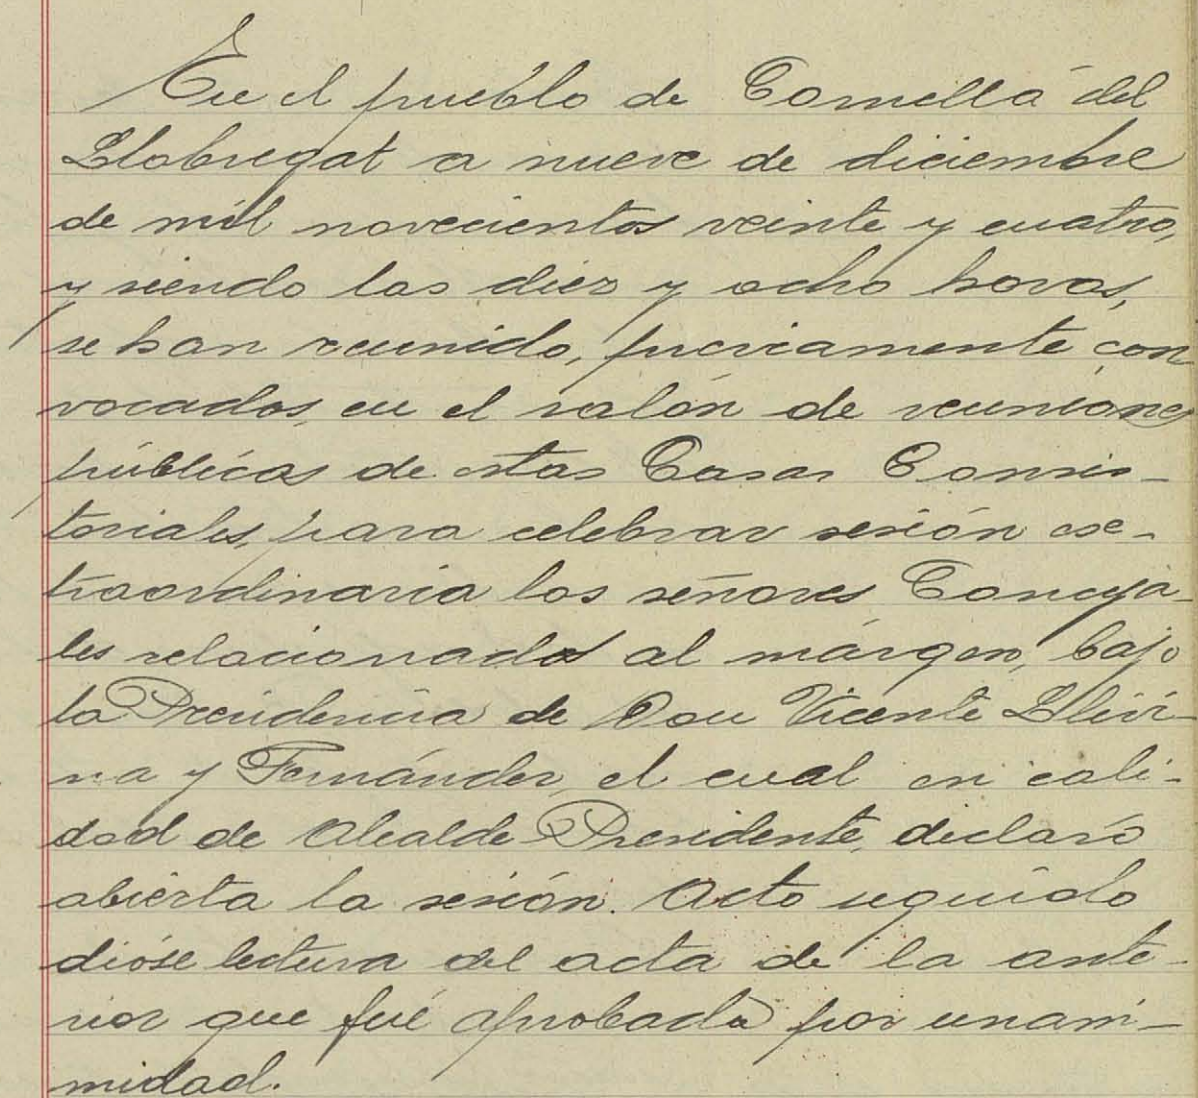 En el pueblo de Cornellá del
Llobregat a nueve de diciembre
de mil novecientos veinte y cuatro,
y siendo las diez y ocho horas,
se han reunido, previamente con
vocados, en el salón de reuniones
públicas de estas Casas Consis-
toriales, para celebrar sesión ex-
traordinaria los señores Conceja-
les relacionados al márgen, bajo
la Presidencia de Don Vicente Llivi-
na y Fernández, el cual en cali-
dad de Alcalde-Presidente, declaró
abierta la sesión. Acto seguido
dióse lectura del acta de la ante-
rior que fué aprobada por unani-
midad.